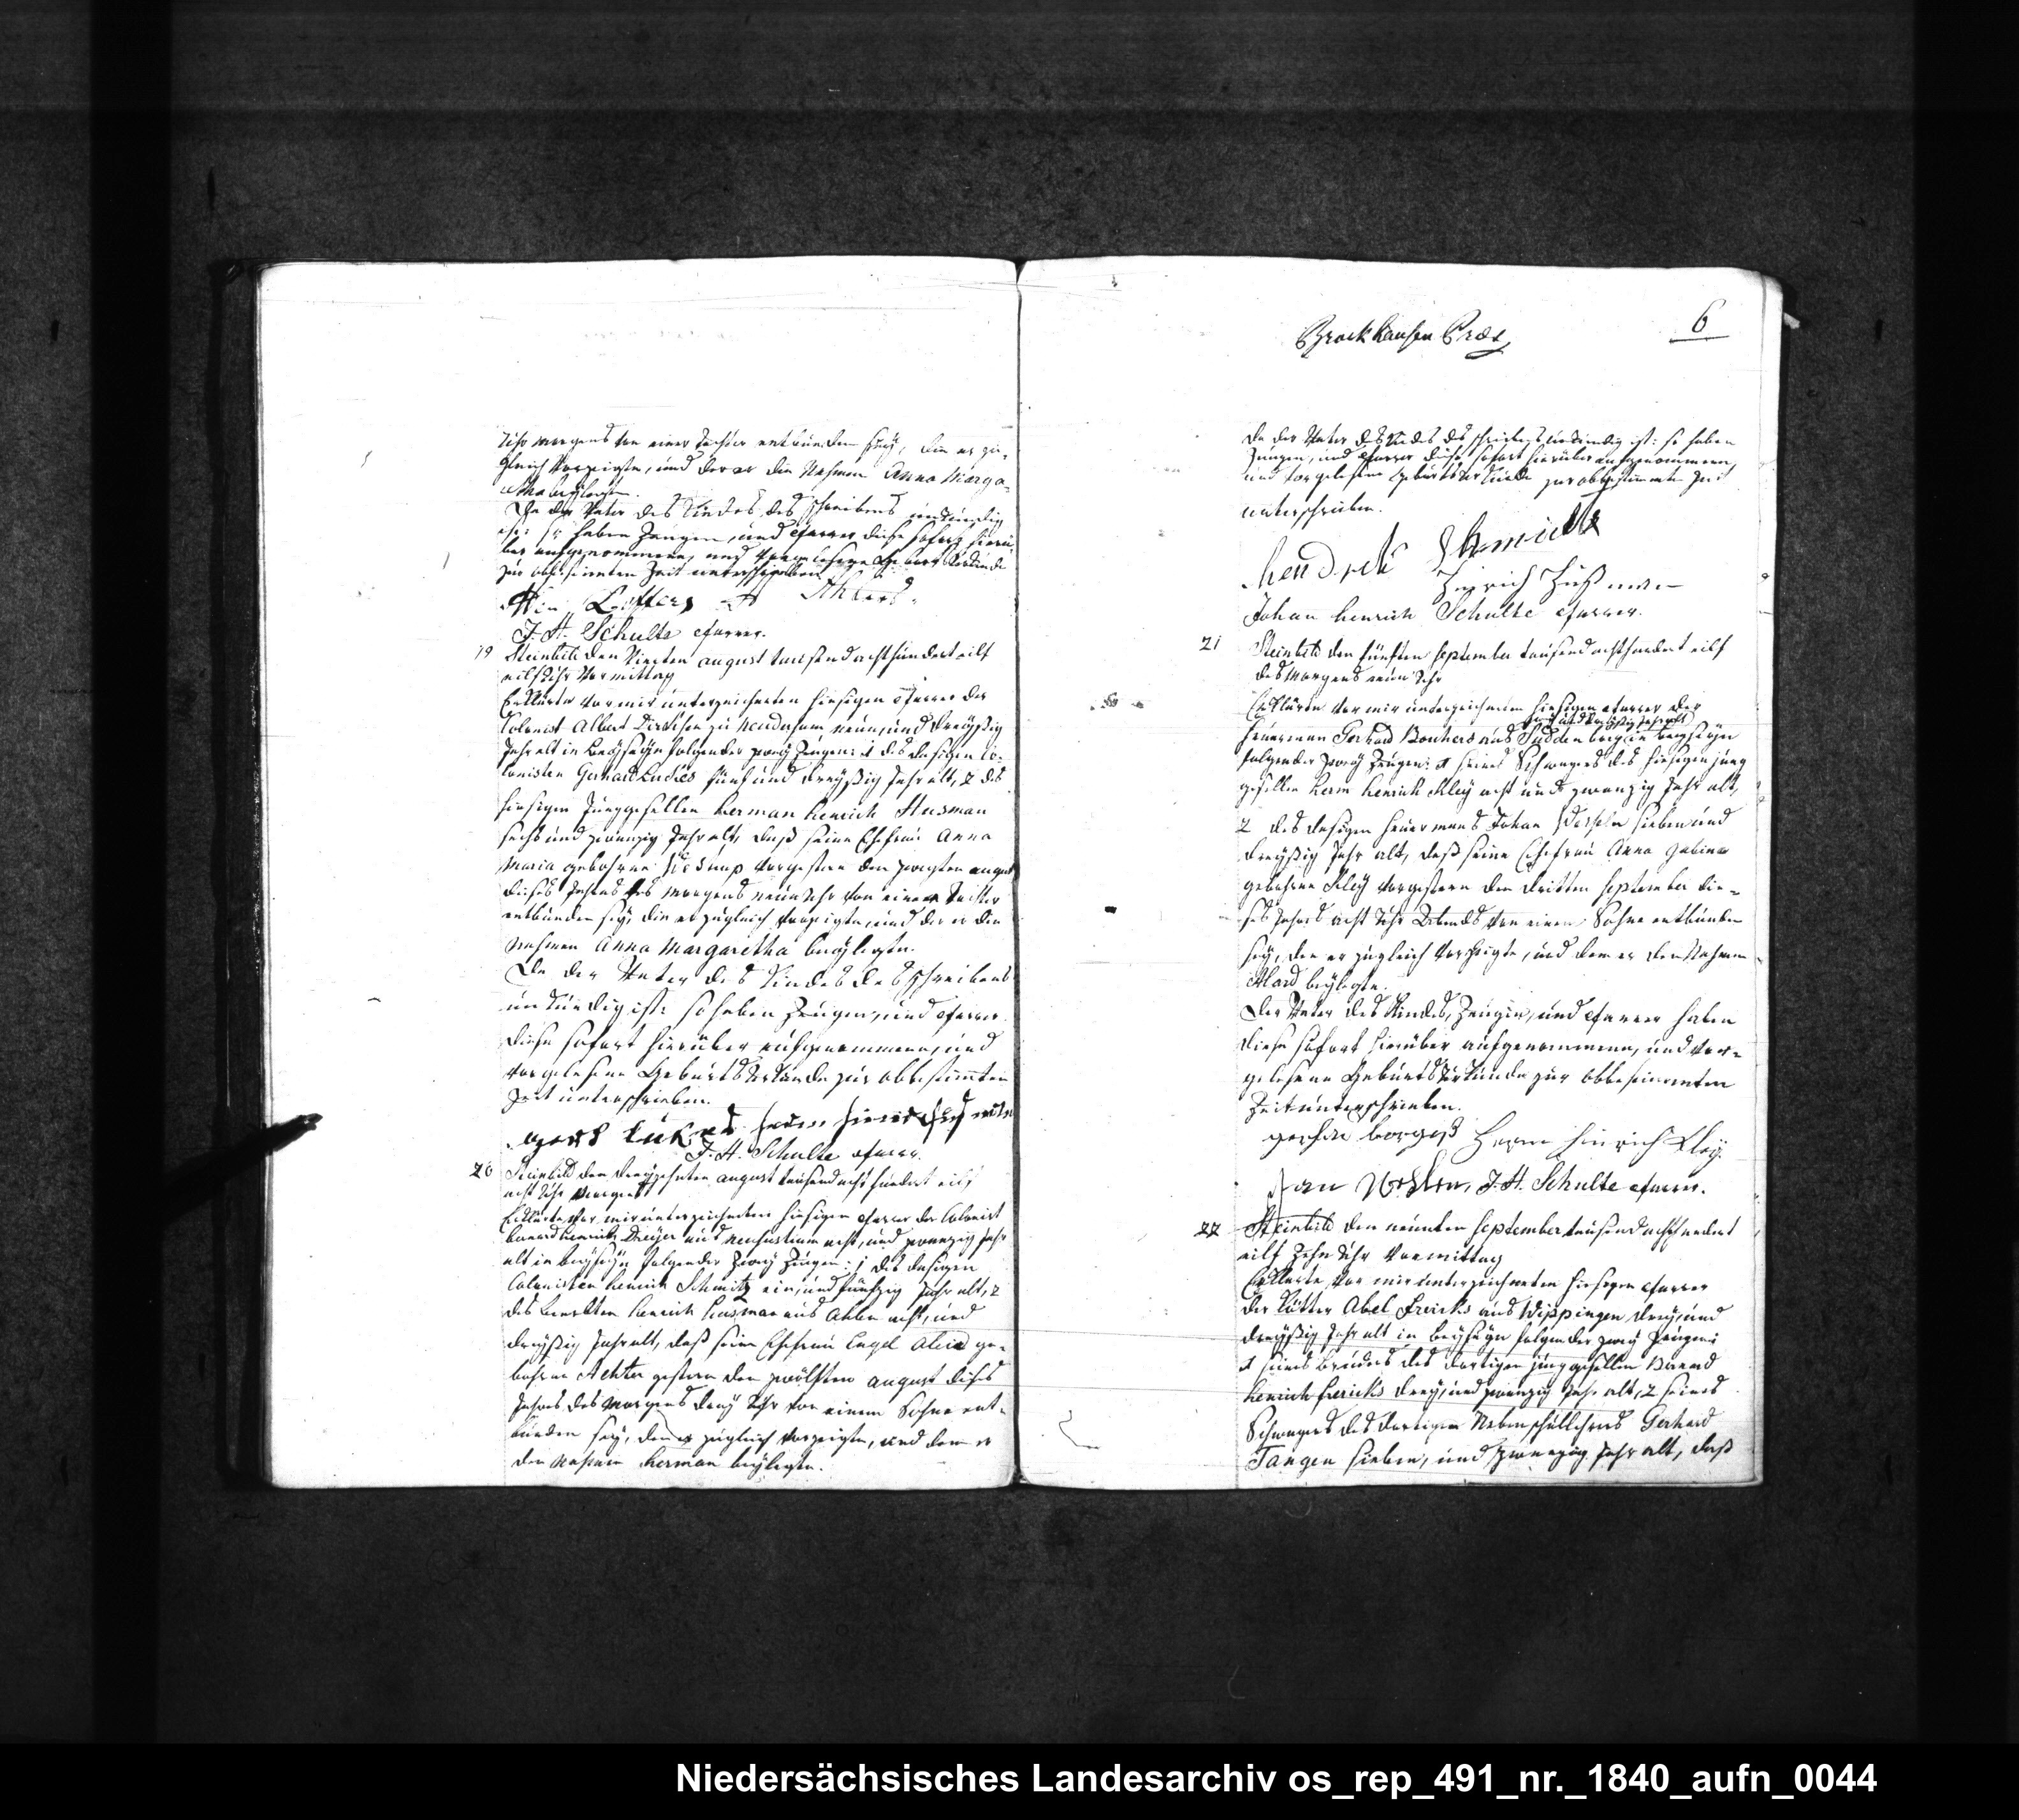 Uhr morgens von einer Tochter entbunden sey, die er zu-
gleich vorzeigte, und der er die Nahmen Anna Marga-
retha beylegte.
Da der Vater des Kindes des schreibens unkündig
ist: so haben Zeugen, und Pfarrer diese sofort hierü-
ber aufgenommene, und vorgelesene Geburts Urkunde
zur obbestimmten Zeit unterschrieben.
Ahlers
J. H. Schulte Pfarrer.
19 Steinbild den Vierten august tausend acht hundert eilf
eilf Uhr Vormittag
Erklärte vor mir unterzeichneten hiesigen Pfarrer der
Colonist Albert Dirksen zu Neudersum neun und dreyßig
Jahr alt in Beyseyn folgender zwey Zeugen: 1 des dasigen Co-
lonisten Gerhard Lucks fünf und dreyßig Jahr alt, 2 des
hiesigen Junggesellen Herman Henrich Husman
sechs und zwanzig Jahr alt, daß seine Ehefrau Anna
Maria gebohrne vorgestern den zweyten august
dieses Jahres des morgens neun Uhr von einer Tochter
entbunden sey, die er zugleich vorzeigte, und der er die
Nahmen Anna Margaretha beylegte.
Da der Vater des Kindes des schreibens
unkündig ist: so haben Zeugen, und Pfarrer
diese sofort hierüber aufgenommene, und
vorgelesene Geburts Urkunde zur obbestimmten
Zeit unterschrieben.
J. H. Schulte Pfarrer.
20 Steinbild den dreyzehnten august tausend acht hundert eilf
acht Uhr Morgens
Erklärte vor mir unterzeichneten hiesigen Pfarrer der Colonist
Berend Henrich Dreyer aus Neusustrum acht, und zwanzig Jahr
alt in beyseyn folgender zwey Zeugen: 1 des dasigen
Colonisten Henrich Schmitz ein, und fünfzig Jahr alt, 2
des Henrich Husman aus acht, und
dreyßig Jahr alt, daß seine Ehefrau Engel Aleid ge-
bohrne Achter gestern den zwölften august dieses
Jahres des Morgens drey Uhr von einem Sohne ent-
bunden sey, den er zugleich vorzeigte, und dem er
den Nahmen Herman beylegte.
6
Brockhausen Præs
Da der Vater des Kindes des schreibens unkündig ist: so haben
Zeugen, und Pfarrer diese sofort hierüber aufgenommene,
und vorgelesene Geburts Urkunde zur obbestimmten Zeit
unterschrieben.
Hendrick Schmidt
Hinrich Hußman
Johan Henrich Schulte Pfarrer.
21 Steinbild den fünften September tausend acht hundert eilf
des Morgens neun Uhr
Erklärte vor mir unterzeichneten hiesigen Pfarrer der
dreyßig Jahr alt
Heuerman Gerhard aus Suddenberg in beyseyn
folgender zwey Zeugen: 1 seines Schwagers des hiesigen jung
gesellen Herm Henrich Kley acht und zwanzig Jahr alt,
2 des dasigen Heuermans Johan sieben und
dreyßig Jahr alt, daß seine Ehefrau Anna Gebina
gebohrne Kley vorgestern den dritten September die-
ses Jahres acht Uhr Abends von einem Sohne entbunden
sey, den er zugleich vorzeigte, und dem er den Nahmen
Alard beylegte.
Der Vater des Kindes, Zeugen, und Pfarrer haben
diese sofort hierüber aufgenommene, und vor-
gelesene Geburts Urkunde zur obbestimmten
Zeit unterschrieben.
Herm Hinrich Kley
Jan J. H. Schulte Pfarrer.
22 Steinbild den neunten September tausend acht hundert
eilf Zehn Uhr Vormittag
Erklärte vor mir unterzeichneten hiesigen Pfarrer
der Kötter Abel Frericks aus Wippingen drey, und
dreyßig Jahr alt in beyseyn folgender zwey Zeugen:
1 seines bruders des dortigen junggesellen Berend
Henrich Frericks drey, und zwanzig Jahr alt, 2 seines
Schwagers des dortigen Nebenschullehrers Gerhard
Tangen sieben, und zwanzig Jahr alt, daß
Niedersächsisches Landesarchiv os_rep_491_nr._1840_aufn_0044